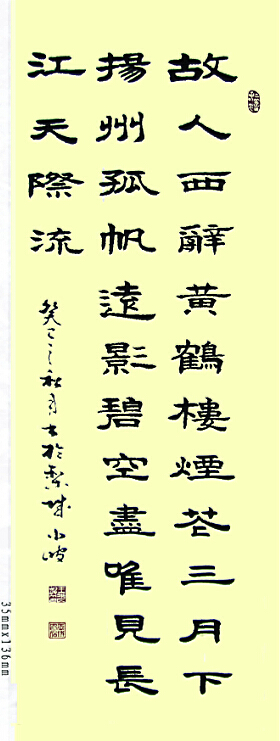 故人西辭黄鶴樓煙花三月下
揚州孤帆遠影碧空盡唯見長
江天際流
癸巳之秋月書於梨城小波
35mmx136mm